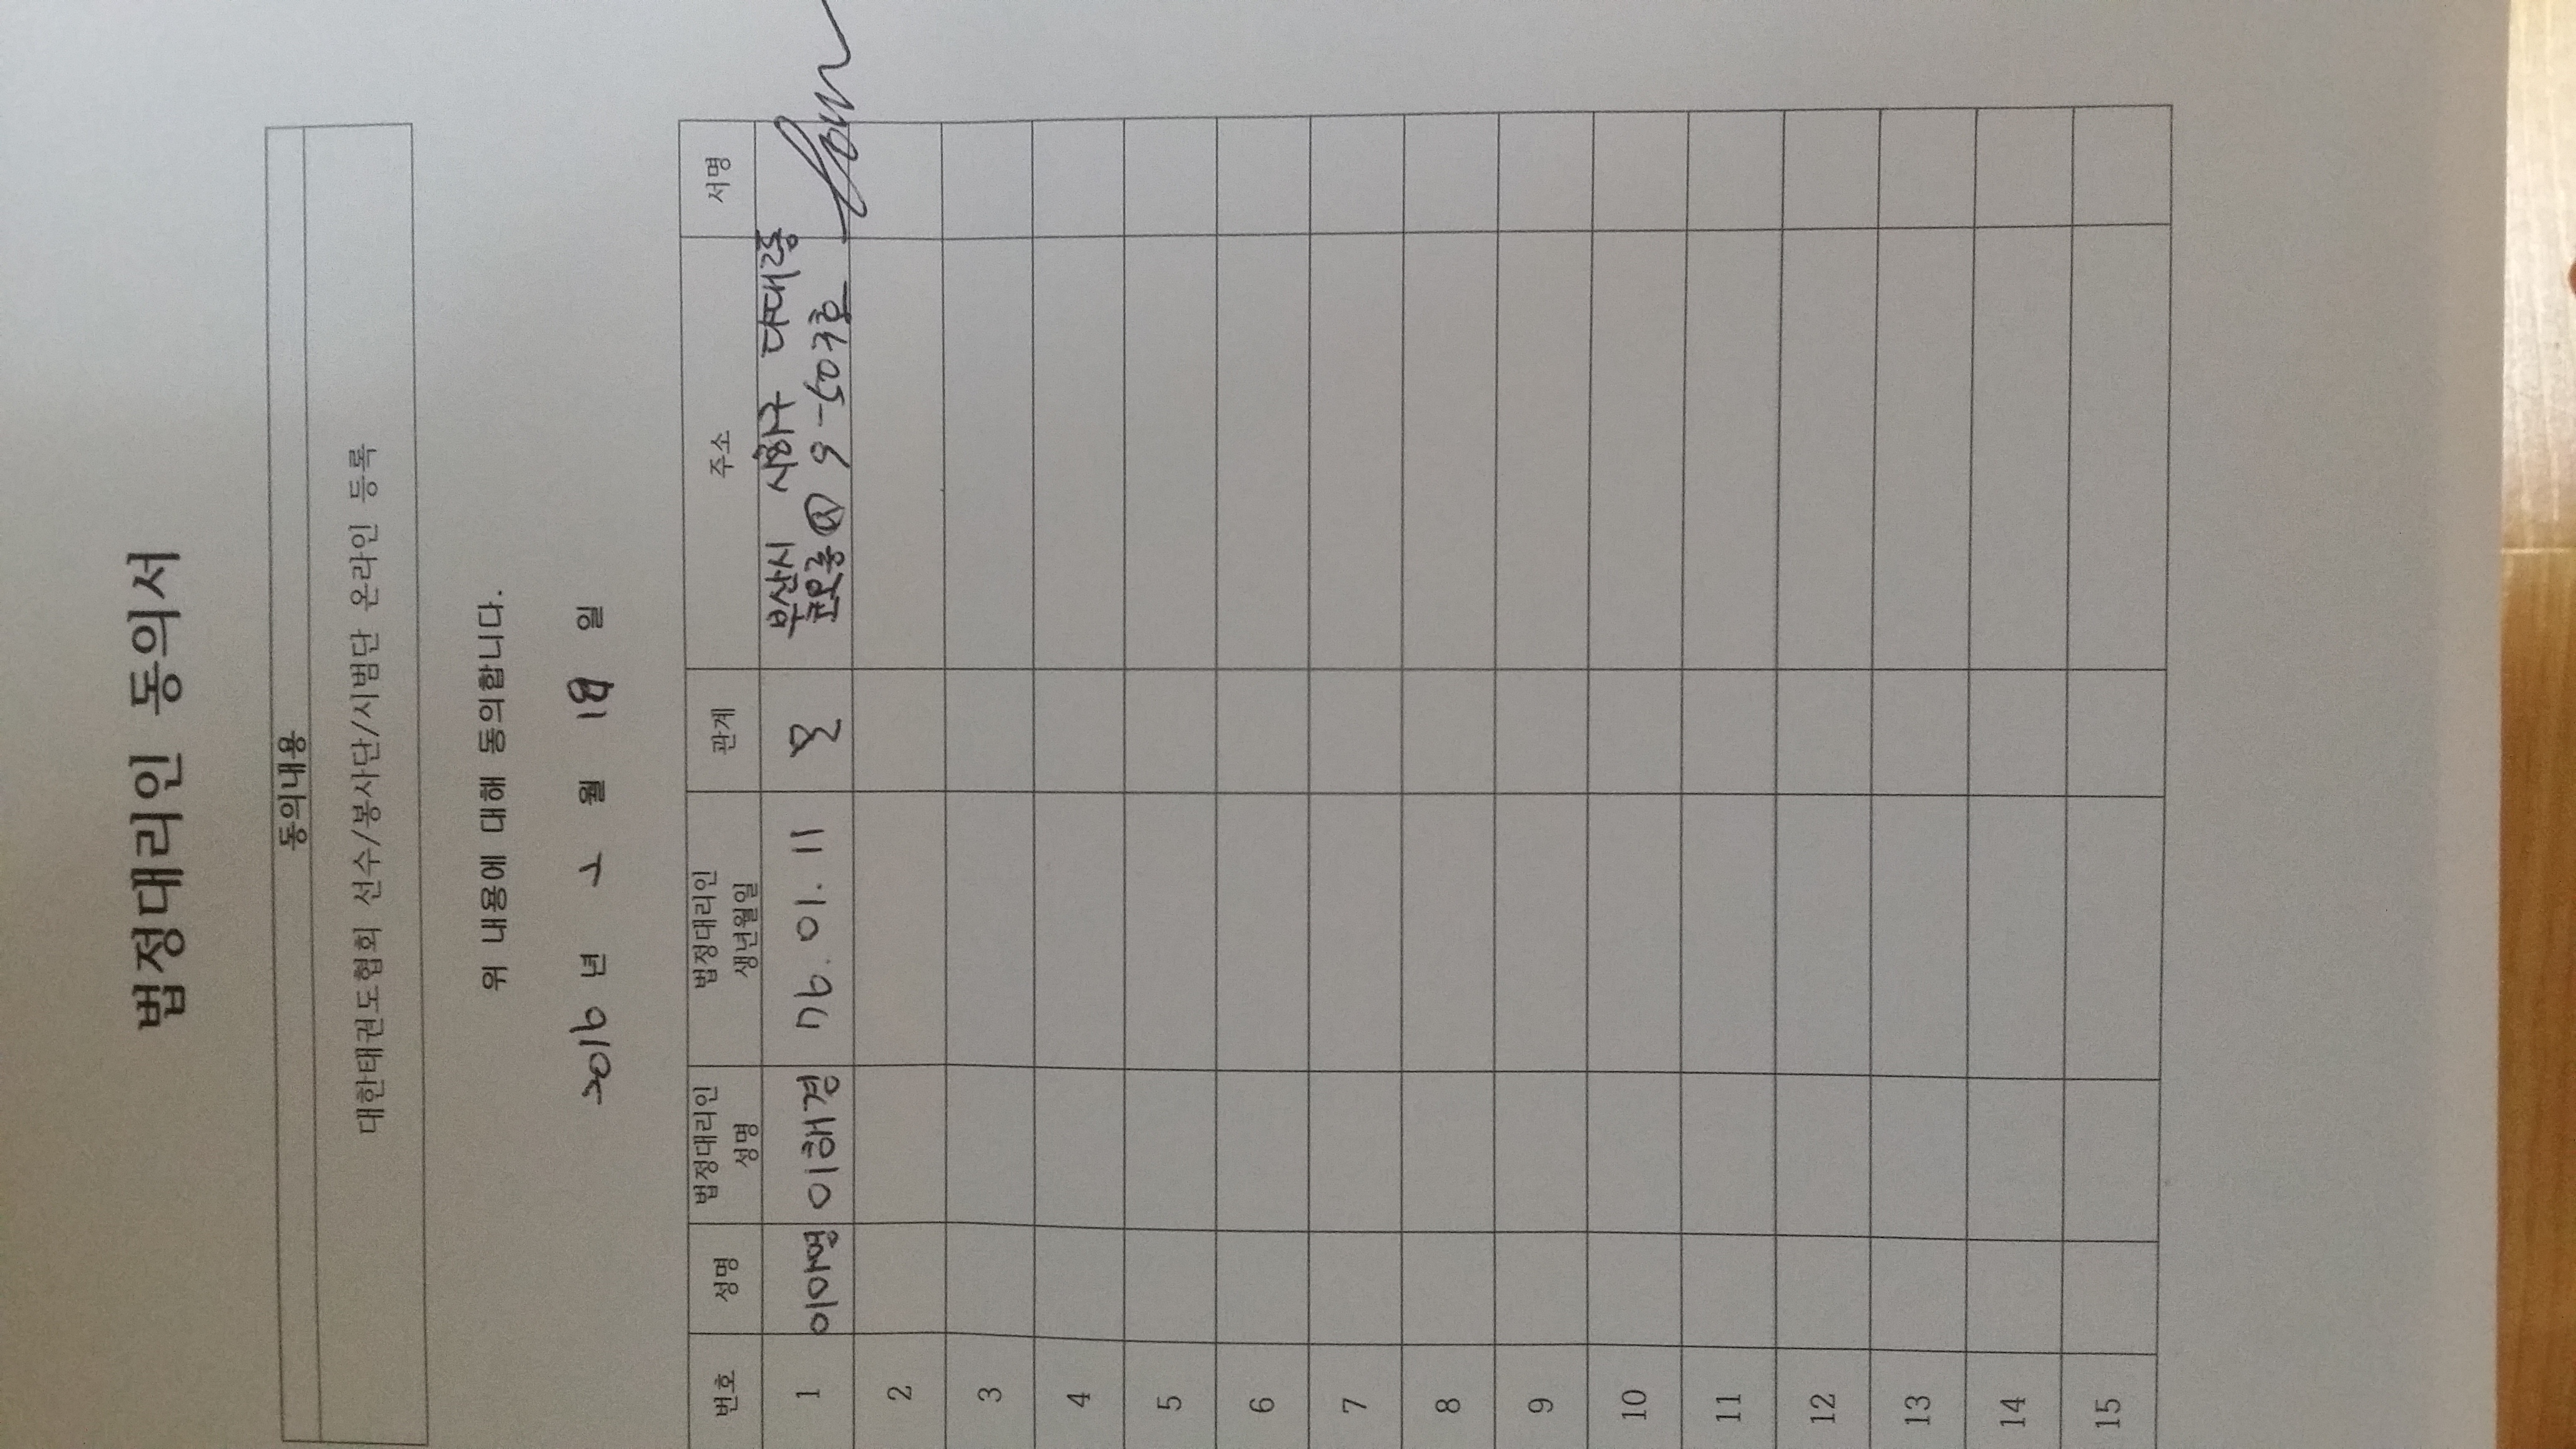 법정대리인 동의서
동의내용
대한태권도협회 선수/봉사단/시범단 온라인 등록
위 내용에 대해 동의합니다.
2016 년 2 월 18 일
번호 성명 법정대리인 성명 법정대리인 생년월일 관계 주소 서명
1 이아영 이해경 76. 01. 11 모 부산시 사하구 다대2동
9-503호
2
3
4
5
6
7
8
9
10
11
12
13
14
15